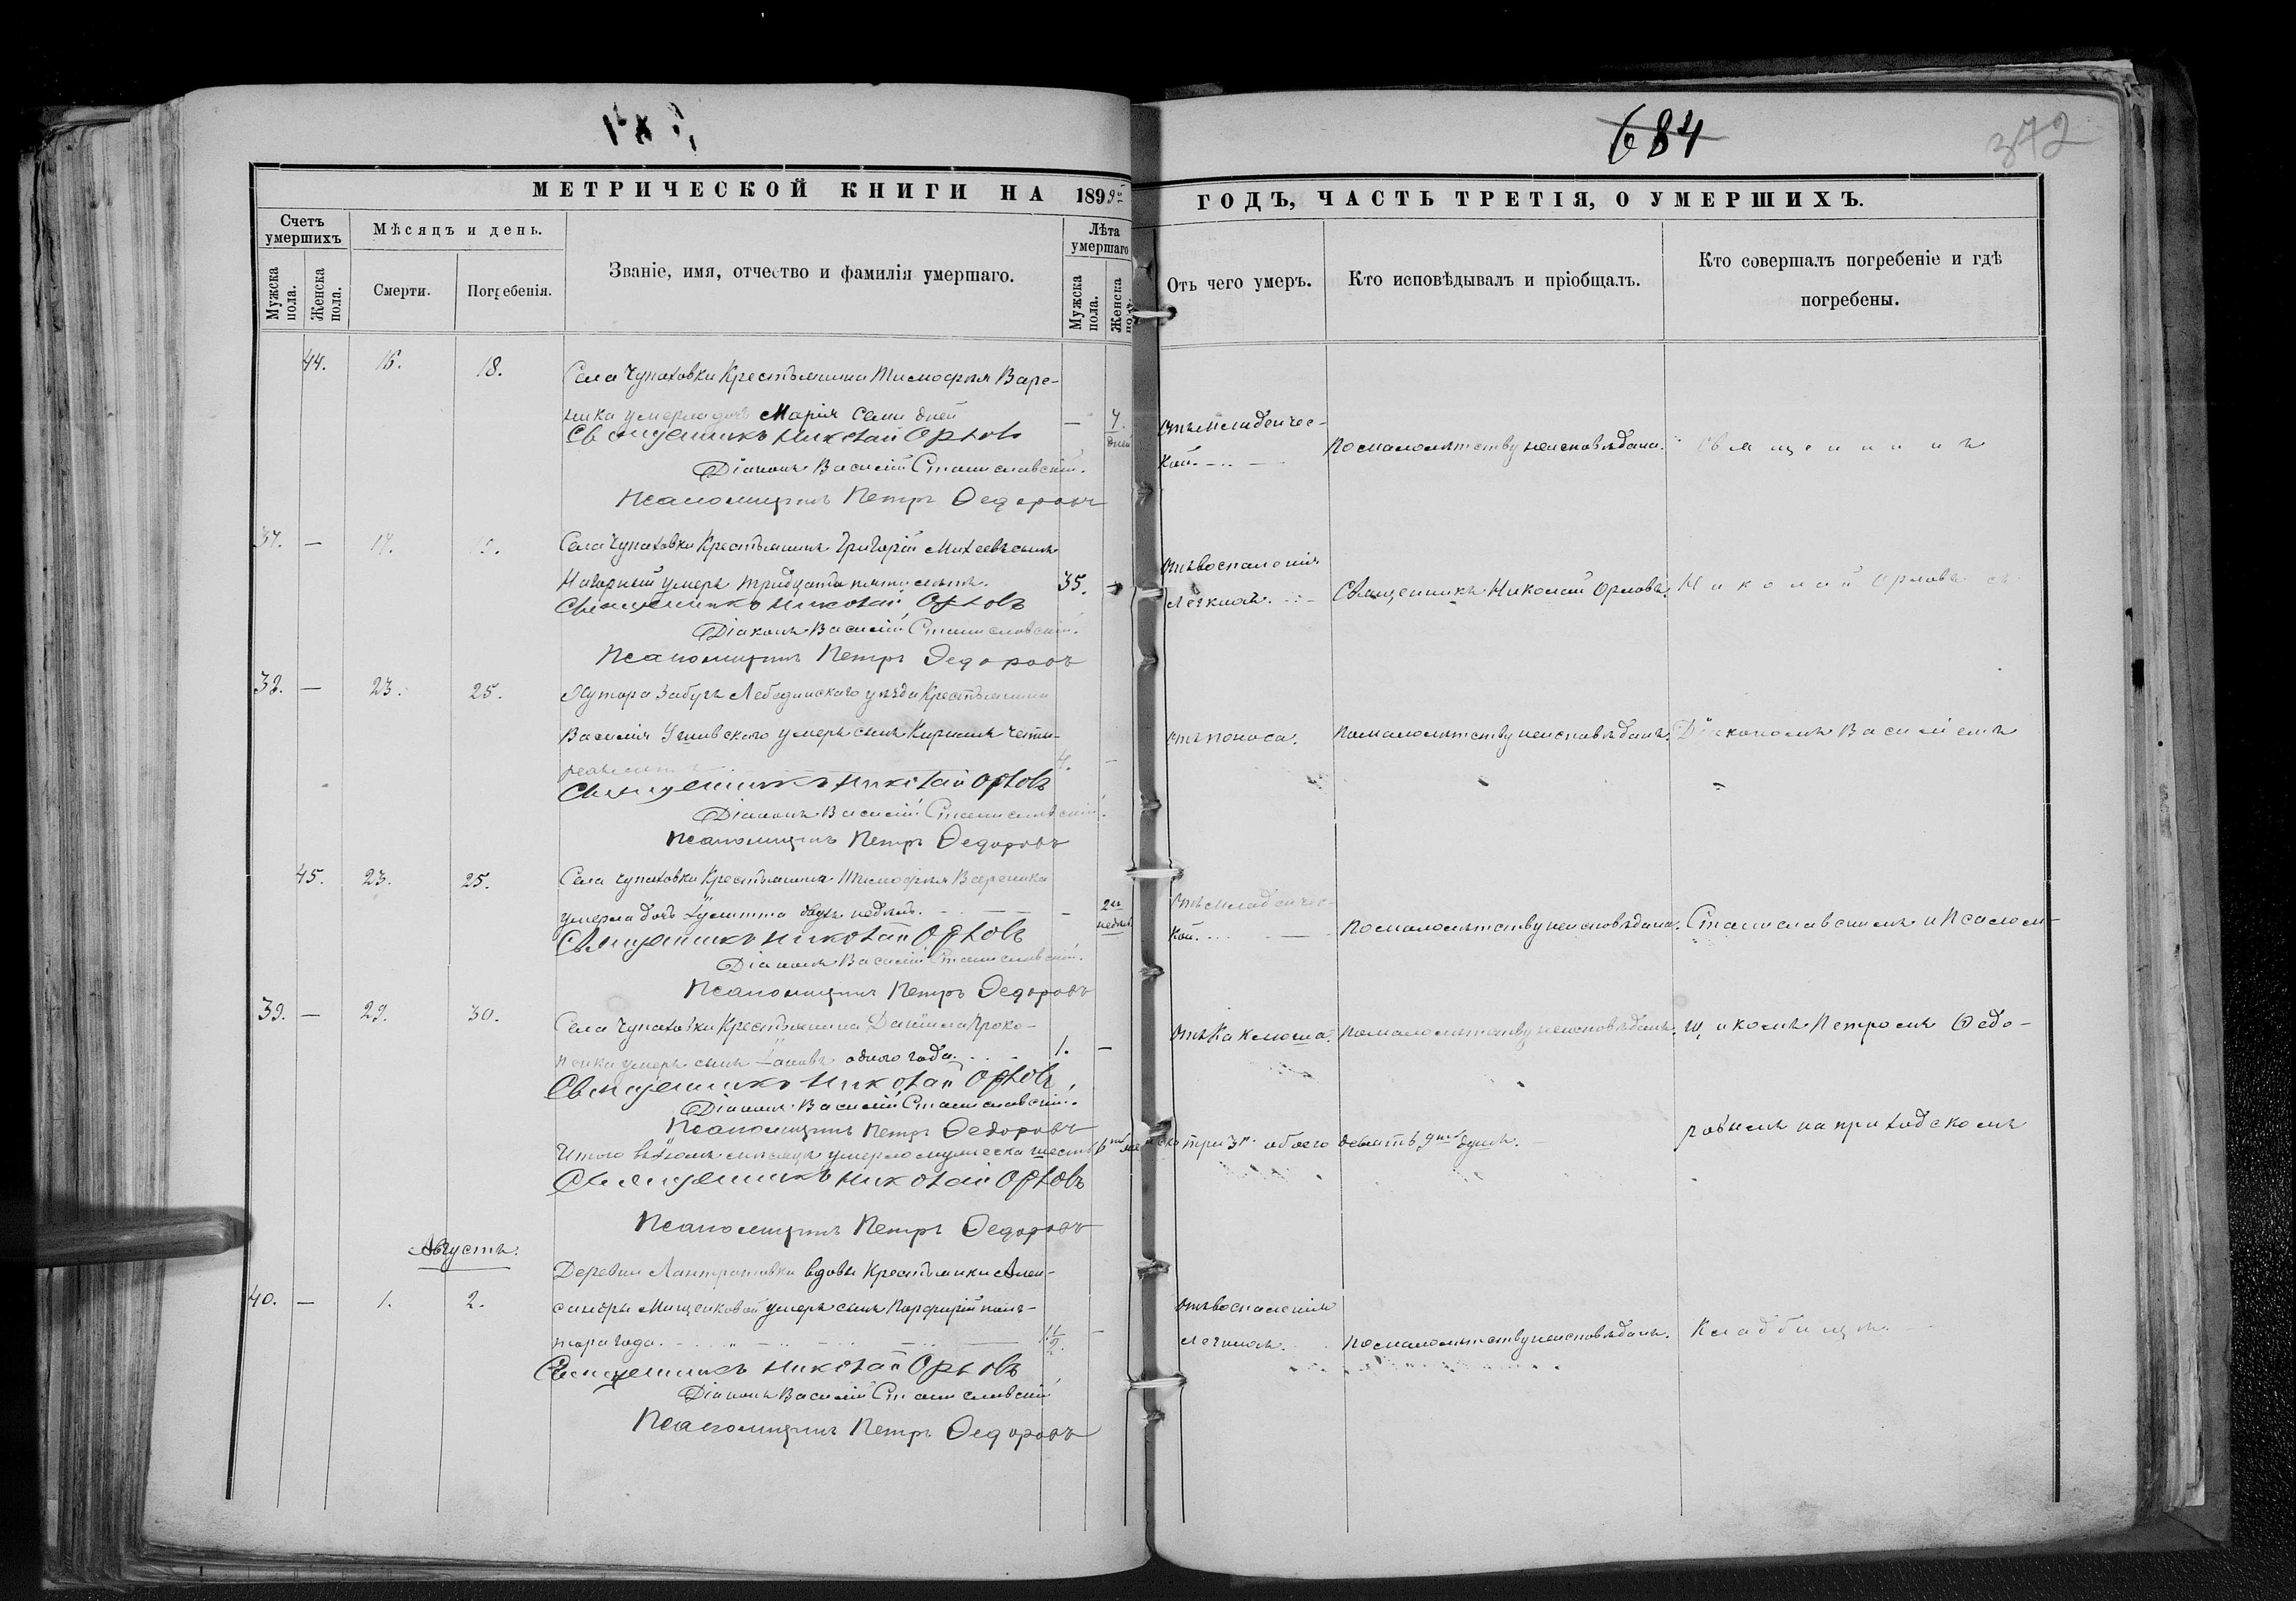 684
372
МЕТРИЧЕСКОЙ КНИГИ НА 1899й
ГОДЪ, ЧАСТЬ ТРЕТІЯ, О УМЕРШИХЪ.
Счетъ умершихъ
Мѣсяцъ и день.
Званіе, имя, отчество и фамилія умершаго.
Лѣта умершаго
Мужска пола.
Женска пола.
Смерти.
Погребенія.
Мужска пола.
Женска полу.
Отъ чего умеръ.
Кто исповѣдывалъ и пріобщалъ.
Кто совершалъ погребеніе и гдѣ погребены.
44. 18.
Села Чупаховки Крестьянина Тимофея Варе-
ника умерла дочь Марія семи дней — 7. дней
Отъ младенчес-
кой.
По малолѣтству неисповѣдана.
Священникъ
Священникъ Николай Орловъ
Діаконъ Василій Станиславскій.
Псаломщикъ Петръ Федоровъ
37. — 17.
Села Чупаховки Крестьянинъ Григорій Михеевъ сынъ
Нагорный умеръ тридцати пяти лѣтъ. 35.
Отъ воспаленія
легкихъ.
Священникъ Николай Орловъ.
Николай Орловъ съ
Священникъ Николай Орловъ
Діаконъ Василій Станиславскій.
Псаломщикъ Петръ Федоровъ
38. — 23. 25.
Хутора Забугъ Лебединскаго уѣзда Крестьянина
Василія умеръ сынъ Кириллъ четы-
рехъ лѣтъ 4. —
Отъ поноса.
По малолѣтству неисповѣданъ.
Діакономъ Василіемъ
Священникъ Николай Орловъ
Діаконъ Василій Станиславскій.
Псаломщикъ Петръ Федоровъ
45. 23. 25.
Села Чупаховки Крестьянина Тимофея Вареника
умерла дочь Іулитта двухъ недѣль. — 2х недѣль
Отъ младенчес-
кой.
По малолѣтству неисповѣдана.
Станиславскимъ и Псалом-
Священникъ Николай Орловъ
Діаконъ Василій Станиславскій.
Псаломщикъ Петръ Федоровъ
39. — 29. 30.
Села Чупаховки Крестьянина Даніила Проко-
пенка умеръ сынъ Іаковъ одного года. 1. —
Отъ Каклюша.
По малолѣтству неисповѣданъ.
щикомъ Петромъ Федо-
Священникъ Николай Орловъ
Діаконъ Василій Станиславскій.
Псаломщикъ Петръ Федоровъ
ровымъ на приходскомъ
Итого въ Іюлѣ мѣсяцѣ умерло мужеска шесть 6ть женска три 3и обоего девять 9ть душъ.
Священникъ Николай Орловъ
Псаломщикъ Петръ Федоровъ
Августъ.
40. — 1. 2.
Деревни вдовы Крестьянки Алек-
сандры Мищенковой умеръ сынъ Порфирій полъ-
тора года. 1 1/2. —
Отъ воспаленія
легкихъ.
По малолѣтству неисповѣданъ.
Кладбищѣ.
Священникъ Николай Орловъ
Діаконъ Василій Станиславскій
Псаломщикъ Петръ Федоровъ